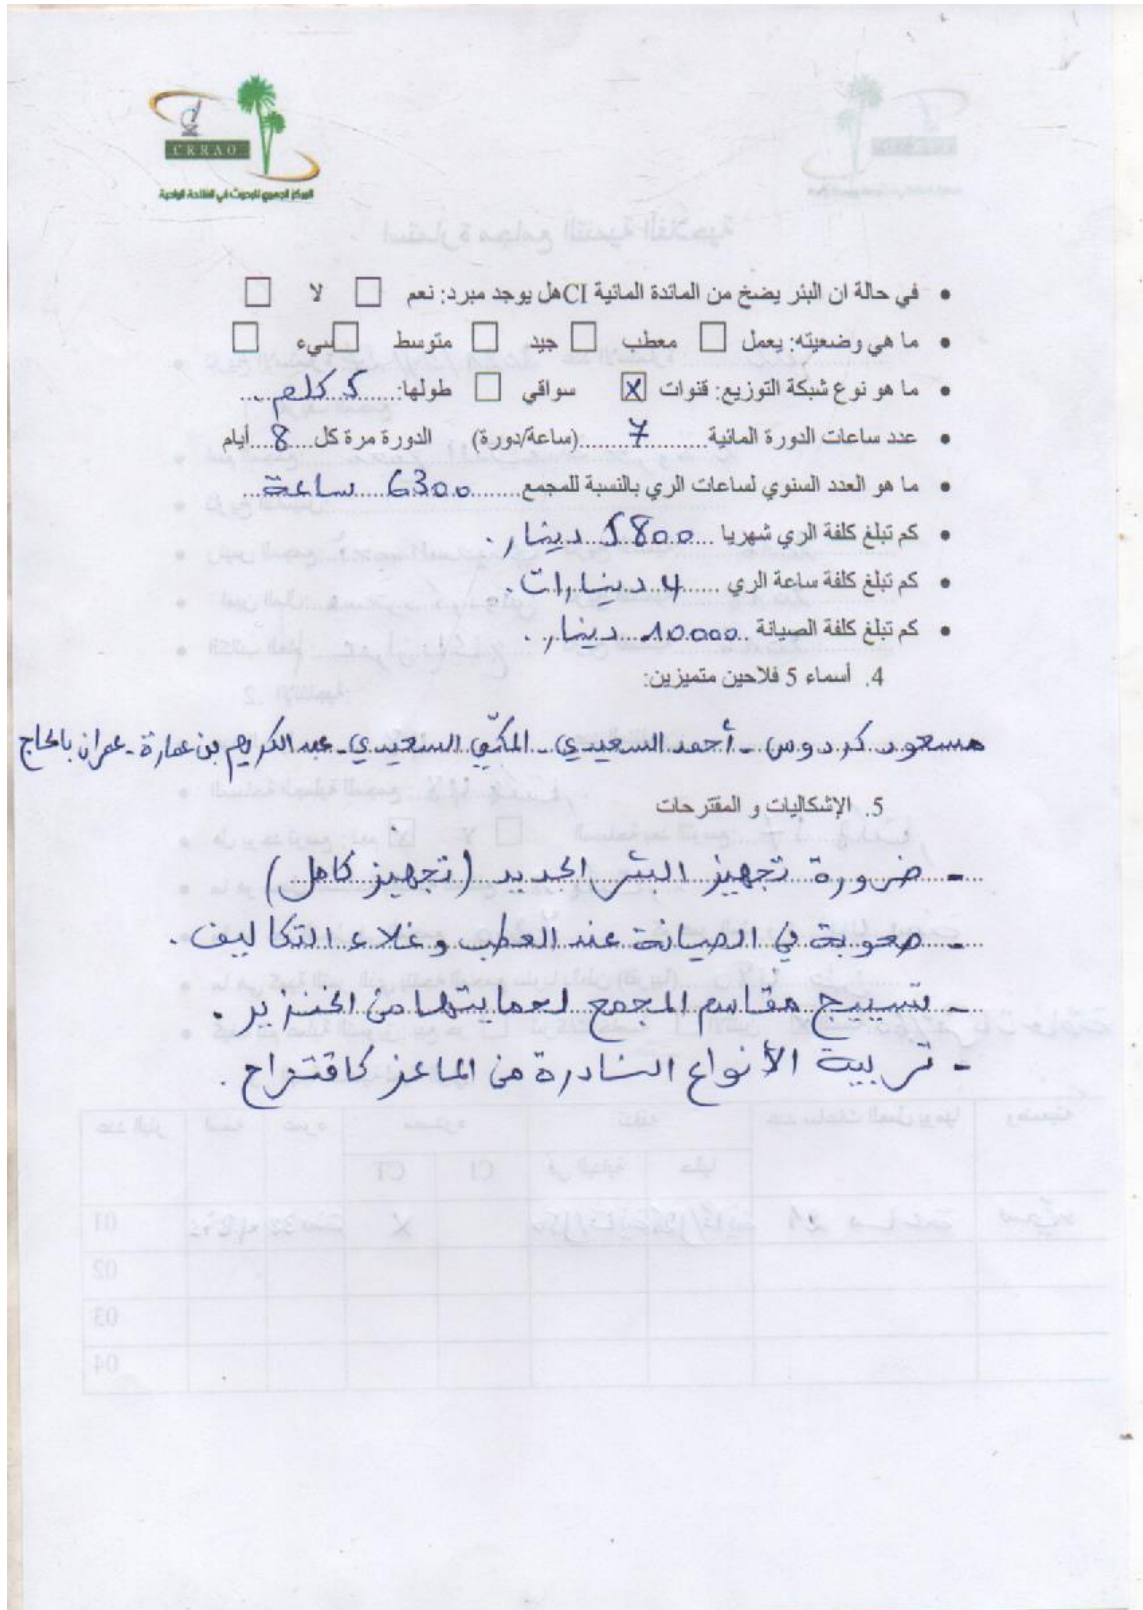 CRRAO
المركز الجهوي للبحوث في الفلاحة الواحية
• في حالة ان البئر يضخ من المائدة المائية CI هل يوجد مبرد: نعم ☐ لا ☐
• ما هي وضعيته: يعمل ☐ معطب ☐ جيد ☐ متوسط ☐ سيء ☐
• ما هو نوع شبكة التوزيع: قنوات ☒ سواقي ☐ طولها: 5 كلم
• عدد ساعات الدورة المائية 7 (ساعة/دورة) الدورة مرة كل 8 أيام
• ما هو العدد السنوي لساعات الري بالنسبة للمجمع 6300 ساعة
• كم تبلغ كلفة الري شهريا 5800 دينار.
• كم تبلغ كلفة ساعة الري 4 دينارات.
• كم تبلغ كلفة الصيانة 10000 دينار.
4. أسماء 5 فلاحين متميزين:
مسعود كردوس - أحمد السعيدي - المكّي السعيدي - عبد الكريم بن عمارة - عمران بالحاج
5. الإشكاليات و المقترحات
- ضرورة تجهيز البئر الجديد (تجهيز كامل)
- صعوبة في الصيانة عند العطب و غلاء التكاليف.
- تسييج مقاسم المجمع لحمايتها من الخنزير.
- تربية الأنواع النادرة من الماعز كاقتراح.